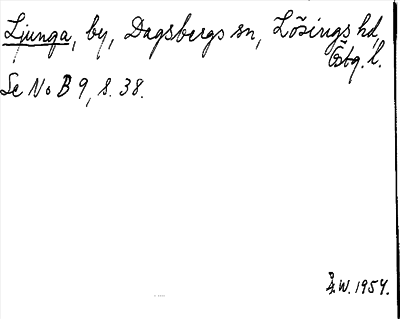 Ljunga, by, Dagsbergs sn, Lösings hd,
Östg. l.
Se NoB 9, s. 38.
W. 1954.